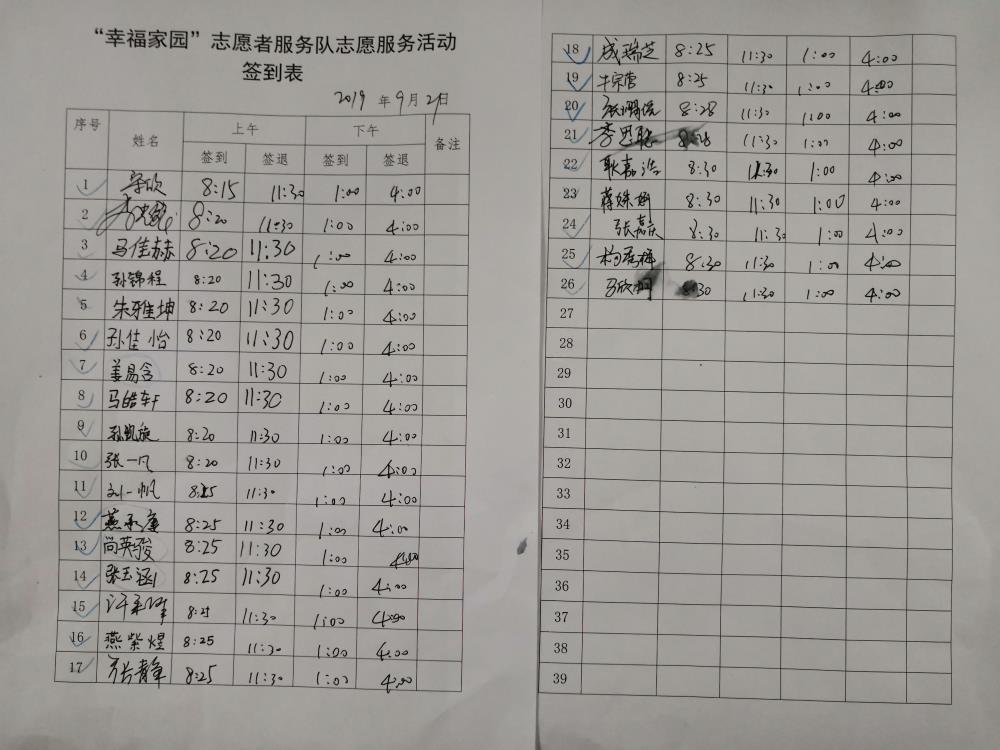 “幸福家园”志愿者服务队志愿服务活动
签到表
2019 年 9 月 21日
序号 姓名 上午 下午 备注
签到 签退 签到 签退
1 8:15 11:30 1:00 4:00
2 8:20 11:30 1:00 4:00
3 马佳赫 8:20 11:30 1:00 4:00
4 孙锦程 8:20 11:30 1:00 4:00
5 朱雅坤 8:20 11:30 1:00 4:00
6 孙佳怡 8:20 11:30 1:00 4:00
7 姜易含 8:20 11:30 1:00 4:00
8 马皓轩 8:20 11:30 1:00 4:00
9 孙凯旋 8:20 11:30 1:00 4:00
10 张一凡 8:20 11:30 1:00 4:00
11 刘一帆 8:25 11:30 1:00 4:00
12 燕 8:25 11:30 1:00 4:00
13 尚英骏 8:25 11:30 1:00 4:00
14 张玉涵 8:25 11:30 1:00 4:00
15 8:25 11:30 1:00 4:00
16 燕紫煜 8:25 11:30 1:00 4:00
17 8:25 11:30 1:00 4:00
18 成瑞芝 8:25 11:30 1:00 4:00
19 牛宗营 8:25 11:30 1:00 4:00
20 8:28 11:30 1:00 4:00
21 李思聪 8:28 11:30 1:00 4:00
22 耿嘉浩 8:30 11:30 1:00 4:00
23 8:30 11:30 1:00 4:00
24 张嘉庆 8:30 11:30 1:00 4:00
25 8:30 11:30 1:00 4:00
26 8:30 11:30 1:00 4:00
27
28
29
30
31
32
33
34
35
36
37
38
39